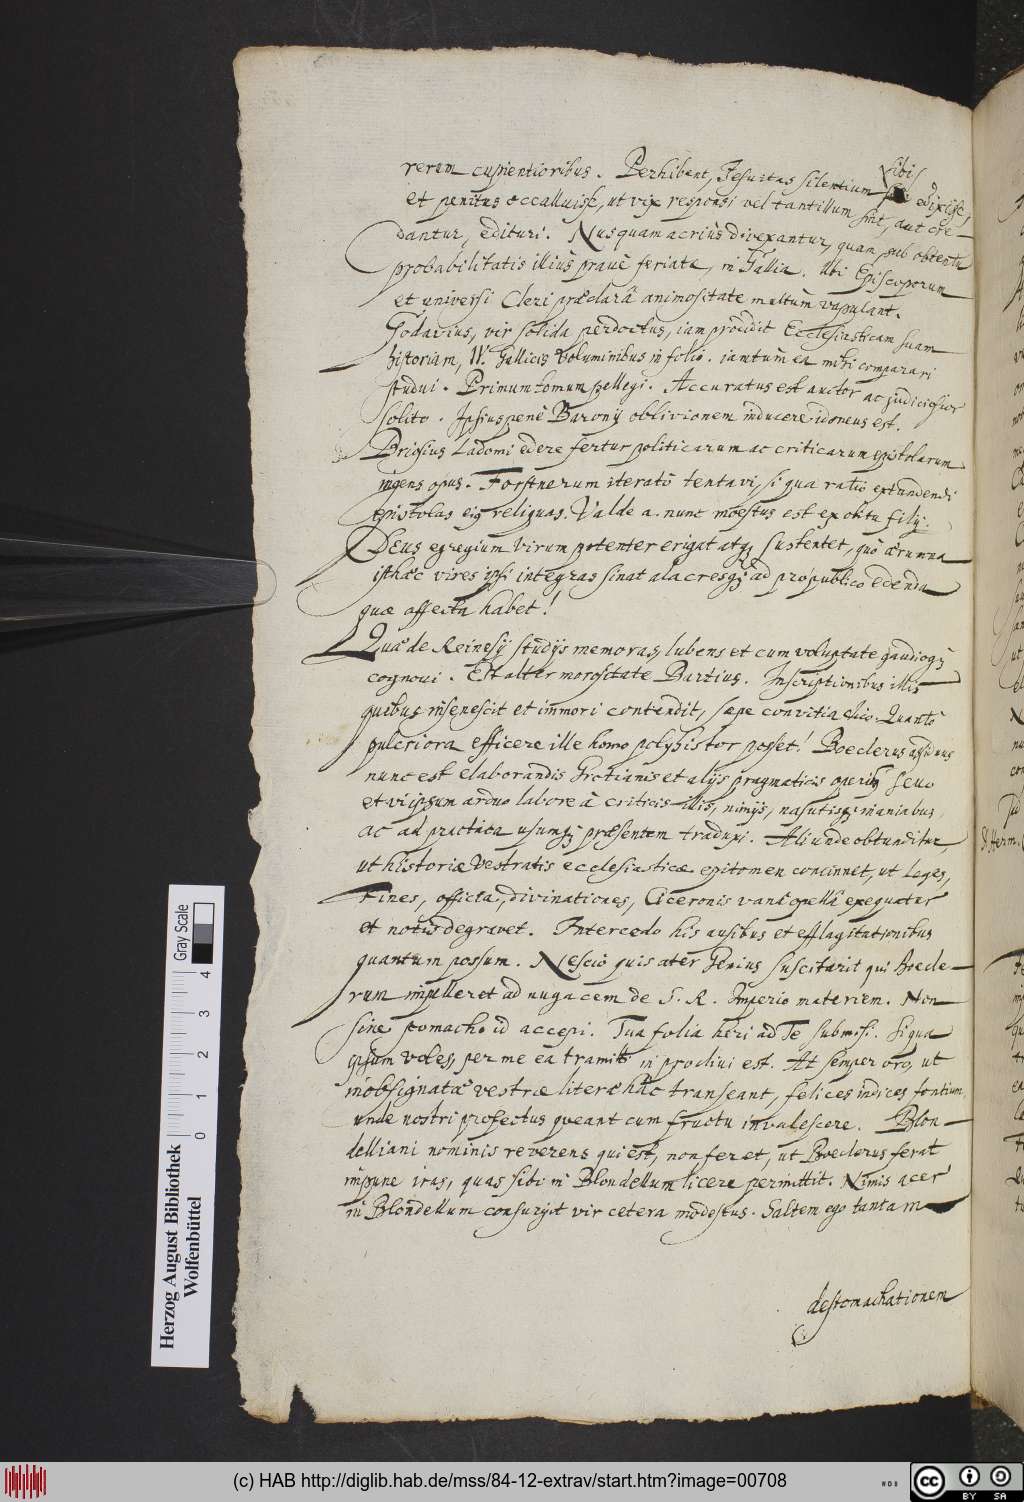 rerum cupientioribus. Perhibent, Jesuitas silentium sibi edixisse,
et penitus occalluisse, ut vix responsi vel tantillum sint, aut cre-
dantur, edituri. Nusquam acriùs divexantur, quam sub obtentu
probabilitatis illius pravè feriata, in Gallia. Ubi Episcoporum
et universi Cleri præclarâ animositate multum vapulant.
Godavius, vir solida perdoctus, iam prodidit Ecclesiasticam suam
historiam, IV. Gallicis voluminibus in folio. iamtum ea mihi comparari
studui. Primum tomum pellegi. Accuratus est auctor ac judiciosior
solito. Ipsius penè Baronij oblivionem inducere idoneus est.
Priosius Ladomi edere fertur politicarum ac criticarum epistolarum
ingens opus. Forstnerum iteratò tentavi, si qua ratio extundendi
epistolas eiq reliquas. Valde a. nunc moestus est ex obitu filij.
Deus egregium virum potenter erigat atq; sustentet, quò ærumna
isthæc vires ipsi integras sinat alacresq; ad pro publico edenda
quæ affecta habet!
Quæ de Reinesij studijs memoras, lubens et cum voluptate gaudioq;
cognovi. Est alter morositate Bartius. Inscriptionibus illis
quibus insenescit et immori contendit, sæpe convitia dico. Quantò
pulcriora efficere ille homo polyhistor posset! Boeclerus assiduus
nunc est elaborandis Grotianis et alijs pragmaticis operibq seuo
et vi ipsum arduo labore à criticis illis, nimijs, nasutisq; maniabus,
ac ad practica usumq; præsentem traduxi. Aliunde obtunditur
ut historiæ vestratis ecclesiasticæ epitomen concinnet, ut Leges,
Fines, officia, divinationes, Ciceronis vanâ opellâ exequatur
et notis degravet. Intercedo his ausibus et efflagitationibus
quantum possum. Nescio quis ater Genius suscitarit qui Boecle-
rum impelleret ad nugacem de S. R. Imperio materiem. Non
sine stomacho id accepi. Tua folia heri ad Te submisi. Si qua
ipsum voles, per me ea tramitti in proclivi est. At semper oro, ut
inobsignatæ vestræ literæ hâc transeant, felices indices fontium,
unde nostri profectus queant cum fructu invalescere. Blon-
delliani nominis reverens qui est, non feret, ut Boeclerus ferat
impune iras, quas sibi in Blondellum licere permittit. Nimis acer
in Blondellum consurgit vir cetera modestus. Saltem ego tantam
destomachationem
Herzog August Bibliothek
Wolfenbüttel
0 1 2 3 4
Gray Scale
(c) HAB http://diglib.hab.de/mss/84-12-extrav/start.htm?image=00708
cc BY SA